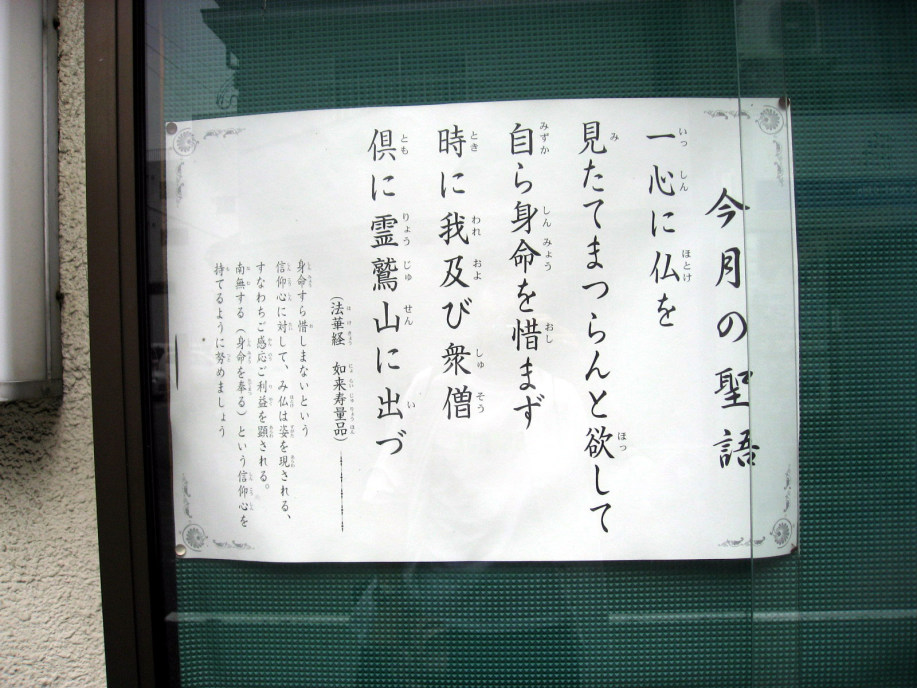 今月の聖語
一心に仏を
見たてまつらんと欲して
自ら身命を惜まず
時に我及び衆僧
倶に霊鷲山に出づ
(法華経 如来寿量品)
身命すら惜しまないという
信仰心に対して、み仏は姿を現される、
すなわちご感応ご利益を顕される。
南無する(身命を奉る)という信仰心を
持てるように努めましょう